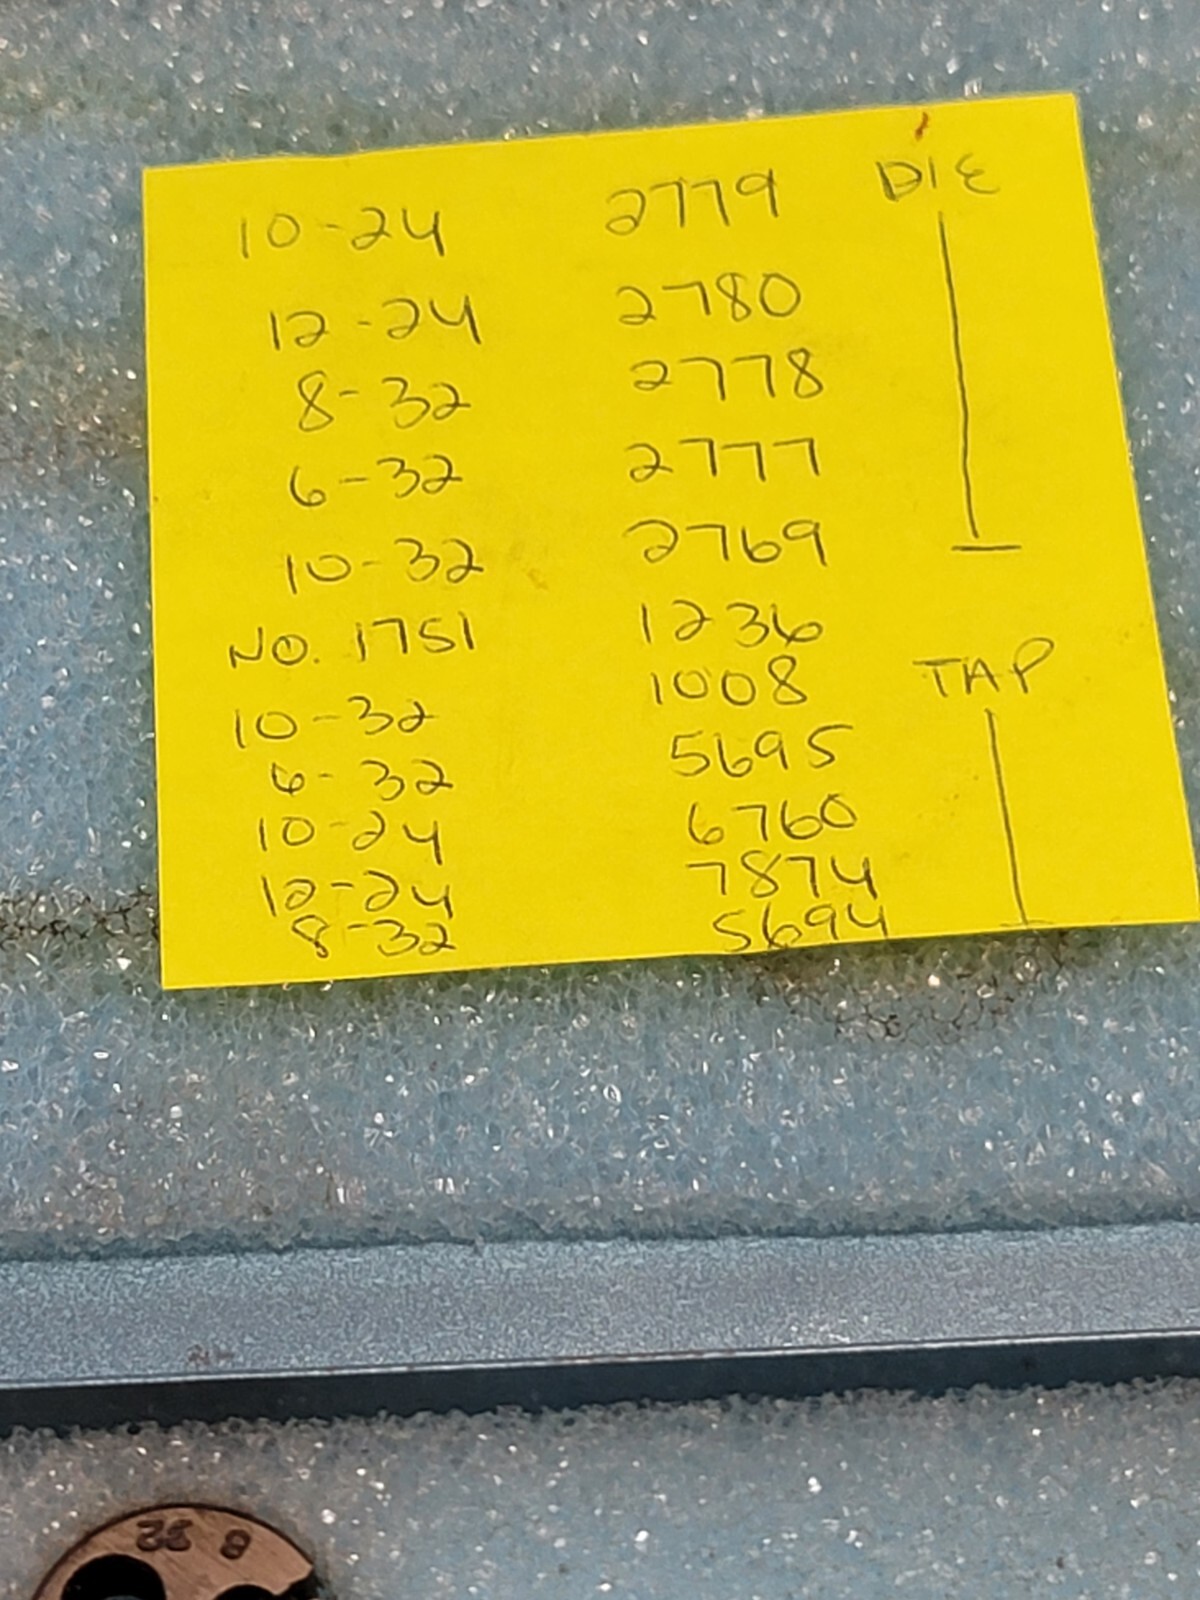 10-24 2779 DIE
12-24 2780
8-32 2778
6-32 2777
10-32 2769
NO. 1751 1236
10-32 1008 TAP
6-32 5695
10-24 6760
12-24 7874
8-32 5694
8 32